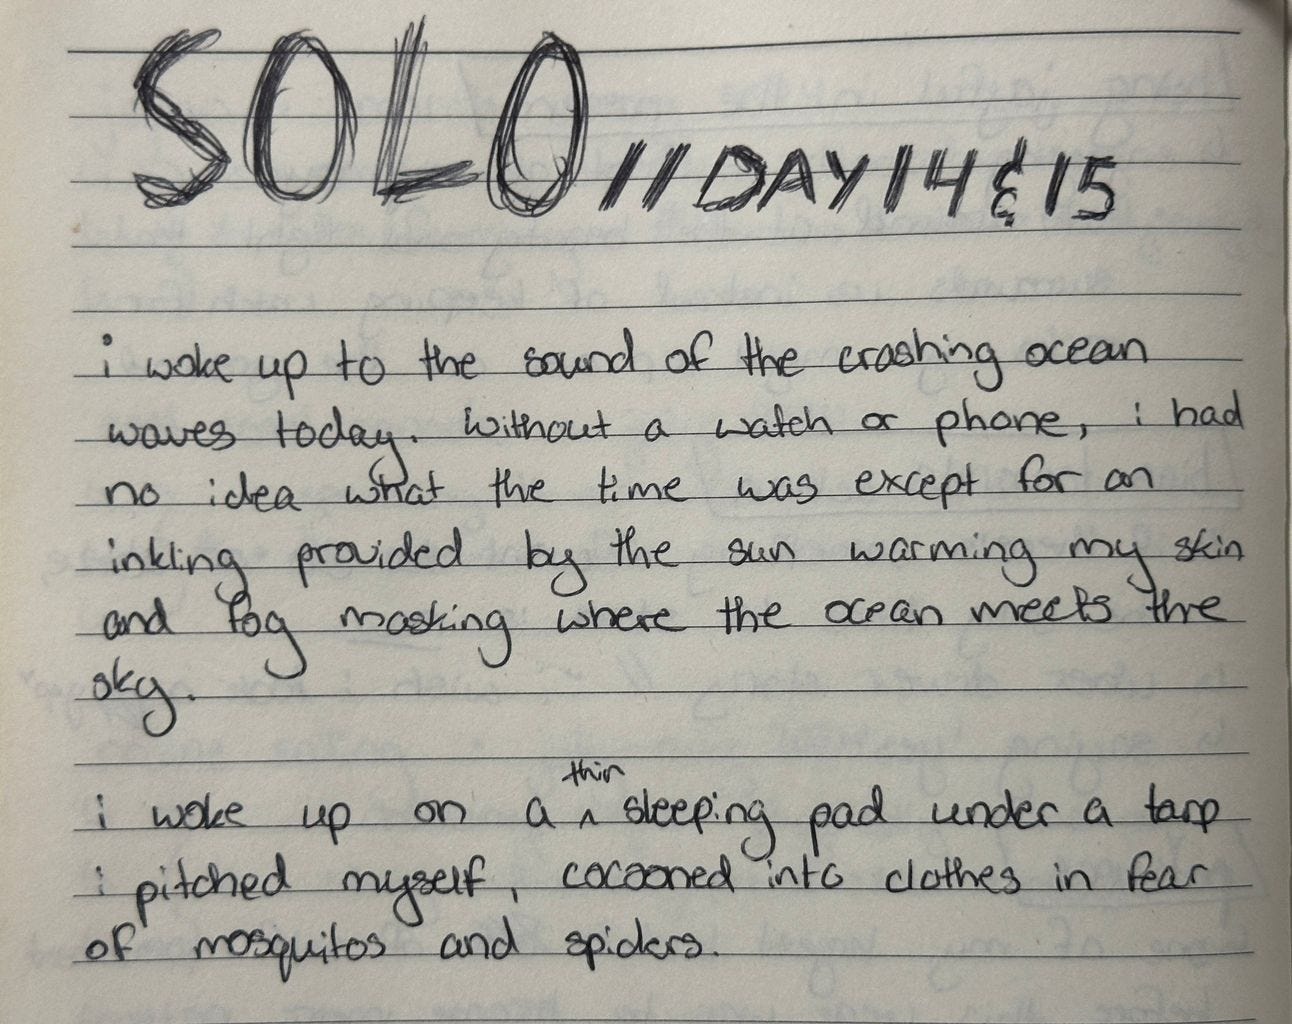 SOLO // DAY 14 & 15
i woke up to the sound of the crashing ocean
waves today. Without a watch or phone, i had
no idea what the time was except for an
inkling provided by the sun warming my skin
and fog masking where the ocean meets the
sky.
i woke up on a ^thin sleeping pad under a tarp
i pitched myself, cocooned into clothes in fear
of mosquitos and spiders.